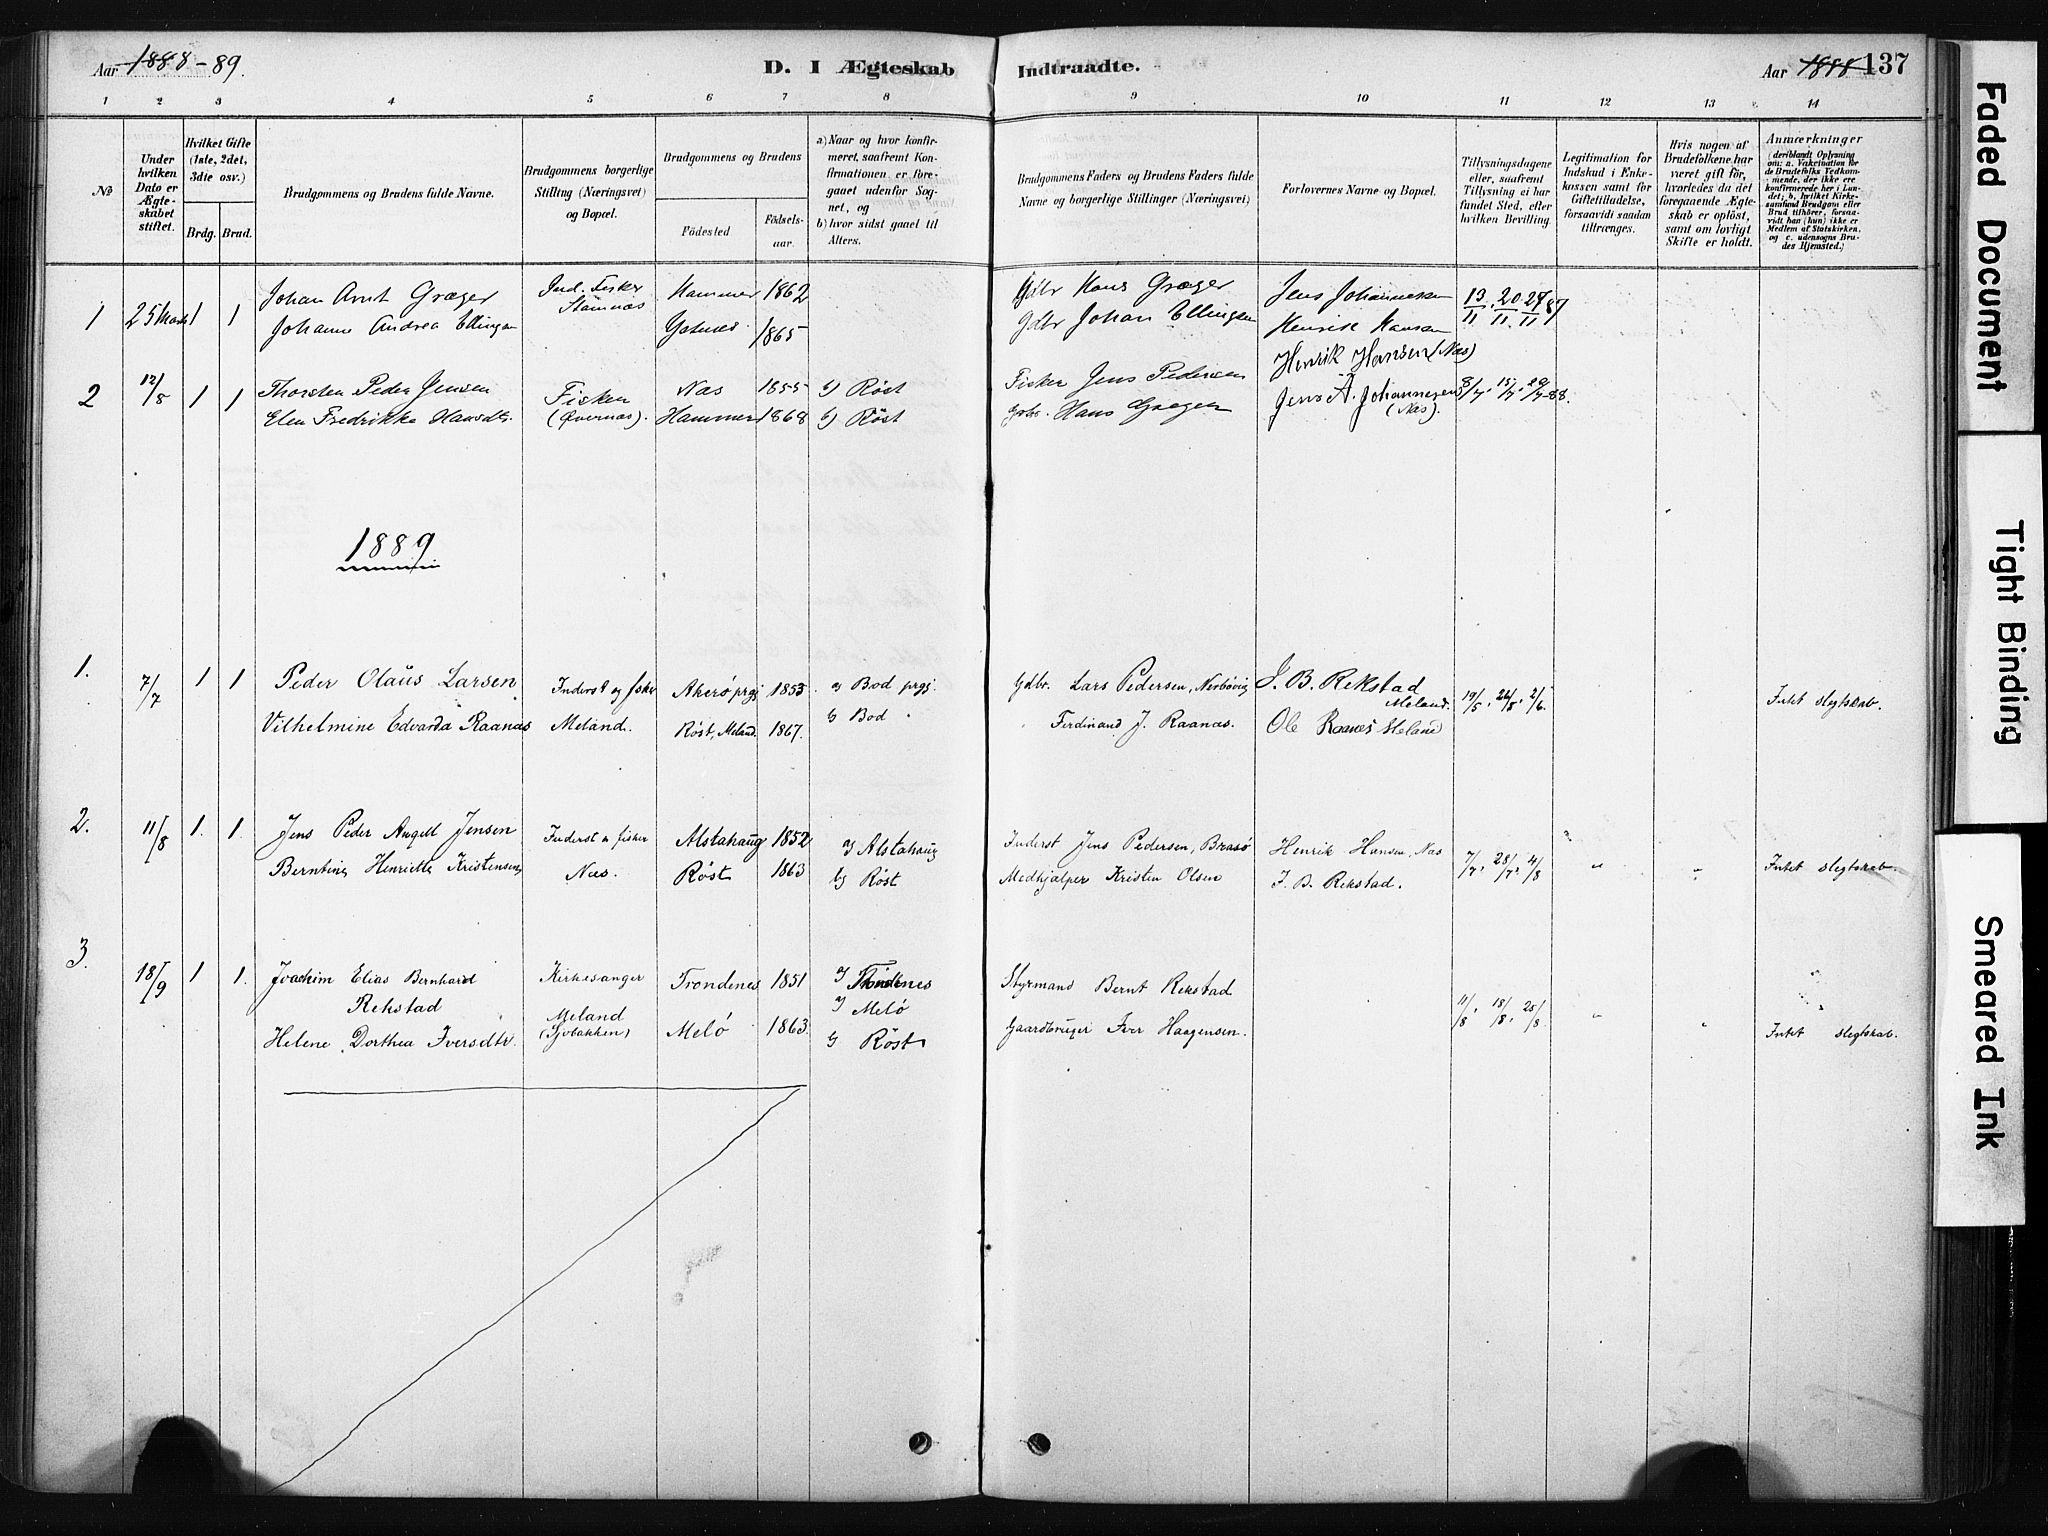 Aar 1888-89.
D. I Ægteskab
Indtraadte.
Aar 1888 137
1 2 3 4 5 6 7 8 9 10 11 12 13 14
No
Under hvilken Dato er Ægteskabet stiftet.
Hvilket Gifte (1ste, 2det, 3die osv.)
Brdg. Brud.
Brudgommens og Brudens fulde Navne.
Brudgommens borgerlige Stilling (Næringsvei) og Bopæl.
Brudgommens og Brudens
Födested
Födsels-aar.
a) Naar og hvor konfirmeret, saafremt Konfirmationen er foregaaet udenfor Sognet, og
b) hvor sidst gaaet til Alters.
Brudgommens Faders og Brudens Faders fulde Navne og borgerlige Stillinger (Næringsvei)
Forlovernes Navne og Bopæl.
Tillysningsdagene eller, saafremt Tillysning ei har fundet Sted, efter hvilken Bevilling.
Legitimation for Indskud i Enkekassen samt for Giftetilladelse, forsaavidt saadan tiltrænges.
Hvis nogen af Brudefolkene har været gift før, hvorledes da det foregaaende Ægteskab er oplöst, samt om lovligt Skifte er holdt.
Anmærkninger
(deriblandt Oplysning om: a. Vakcination for de Brudefolks Vedkommende, der ikke ere konfirmerede her i Landet; b. hvilket Kirkesamfund Brudgom eller Brud tilhörer, forsaavidt han (hun) ikke er Medlem af Statskirken, og c. udensogns Brudes Hjemsted.)
1 25 Marts 1 1 Johan Arnt Græger Ind. Fisker Hammer 1862 Gdbr Hans Græger Jens Johannesen 13/11. 20/11. 27/11 87
Johanne Andrea Ellingsen Stamnas 1865 Gdbr Johan Ellingsen Henrik Hansen
Henrik Hansen (Nas)
2 12/8 1 1 Thorsten Peder Jensen Fisker Nas 1855 b) Röst Fisker Jens Pedersen Jens A. Johannesens 8/7. 15/7. 29/7-88.
Elen Fredrikke Hansdtr. (Övernas). Hammer 1868 b) Röst Gdbr. Hans Græger (Nas).
1889
1. 7/7 1 1 Peder Olaüs Larsen Inderst og fisker Akerö prgj 1853 a) Bod prgj. Gdbr. Lars Pedersen, Nerbövig J. B. Rekstad Meland. 19/5. 26/5. 2/6. Intet slegtskab.
Vilhelmine Edvarda Raanas Meland. Röst, Meland. 1867. b) Bod " Ferdinand J. Raanas. Ole Raanes Meland
2. 11/8 1. 1. Jens Peder Angell Jensen Inderst o fisker Alstahaug 1852 a) Alstahaug Inderst Jens Pedersen, Brasö Henrik Hansen, Nas 7/7. 28/7. 4/8 " " Intet slegtskab.
Berntine Henriette Kristensen Nas. Röst 1863 b) Röst Medhjælper Kristen Olsen J. B. Rekstad.
3. 18/9 1 1. Joachim Elias Bernhard Kirkesanger Trondenes 1851 a) Trondenes Styrmand Bernt Rekstad 11/8. 18/8. 25/8. " " Intet slegtskab.
Rekstad Meland a) Melö
Helene Dorthea Iversdtr. (Sjöbakken) Melö 1863. b) Röst Gaardbruger Iver Haagensen.
Faded Document
Tight Binding
Smeared Ink